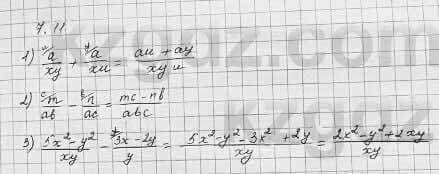 7.11
1) u/ a/xy + y/ a/xu = (au + ay)/xyu
2) c/ m/ab - b/ n/ac = (mc - nb)/abc
3) (5x² - y²)/xy - x/ (3x - 2y)/y = (5x² - y² - 3x² + 2y)/xy = (2x² - y² + 2xy)/xy
kzgaz.com